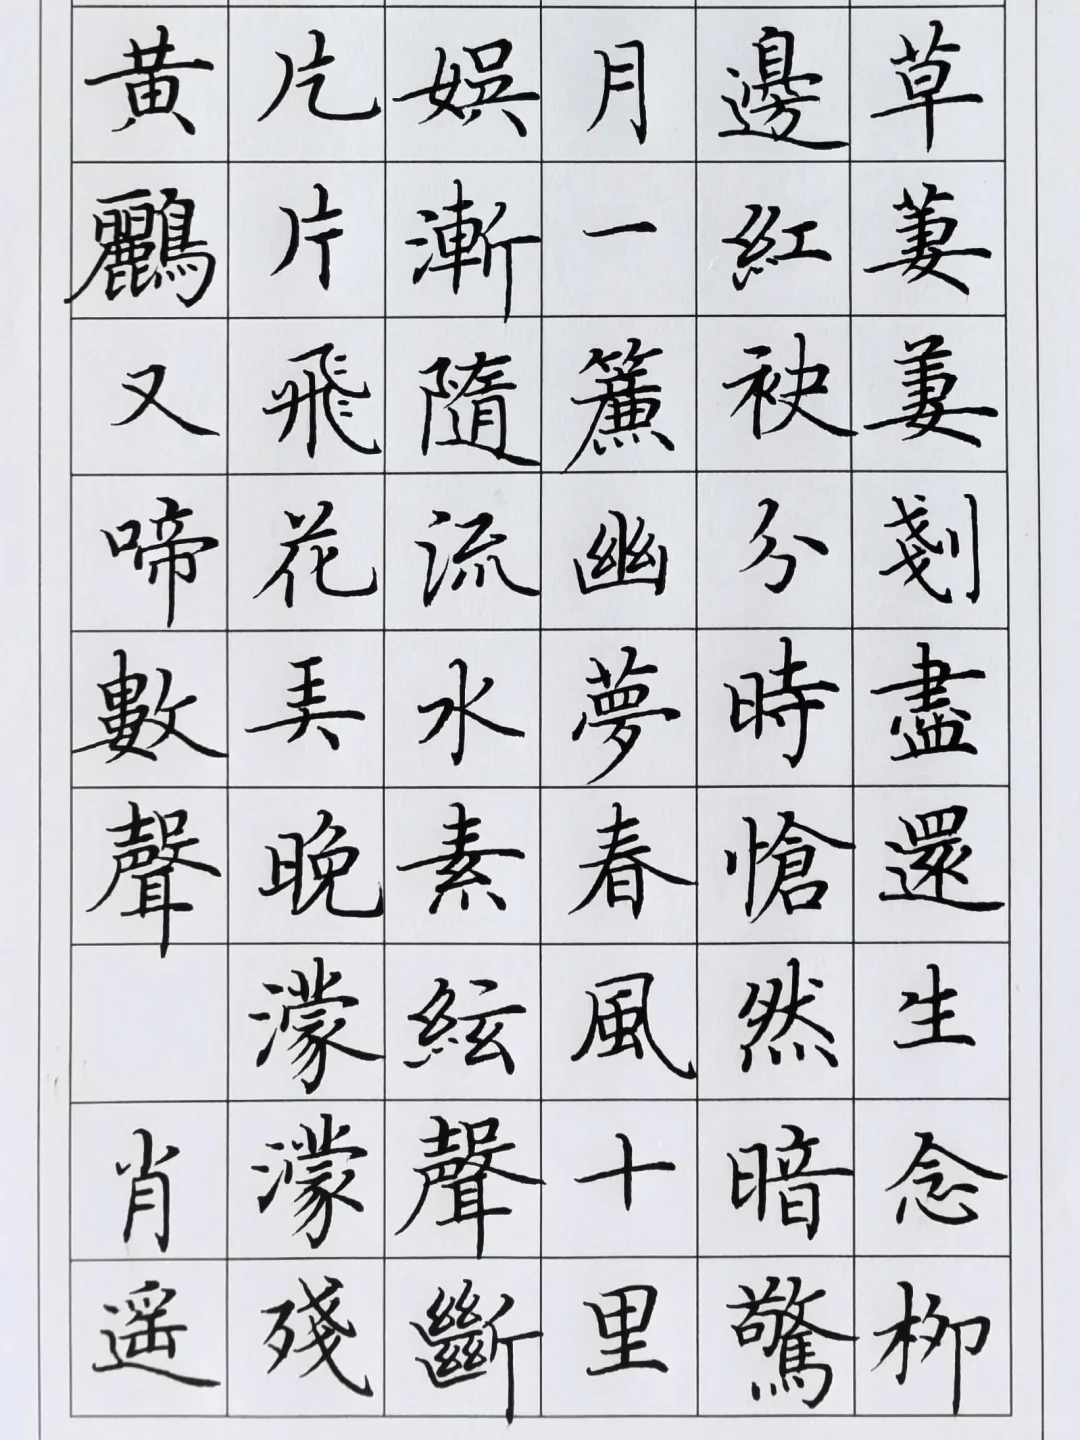 草萋萋剗盡還生念柳
邊紅袂分時愴然暗驚
月一簾幽夢春風十里
娛漸隨流水素絃聲斷
片片飛花弄晚濛濛殘
黃鸝又啼數聲 肖遥